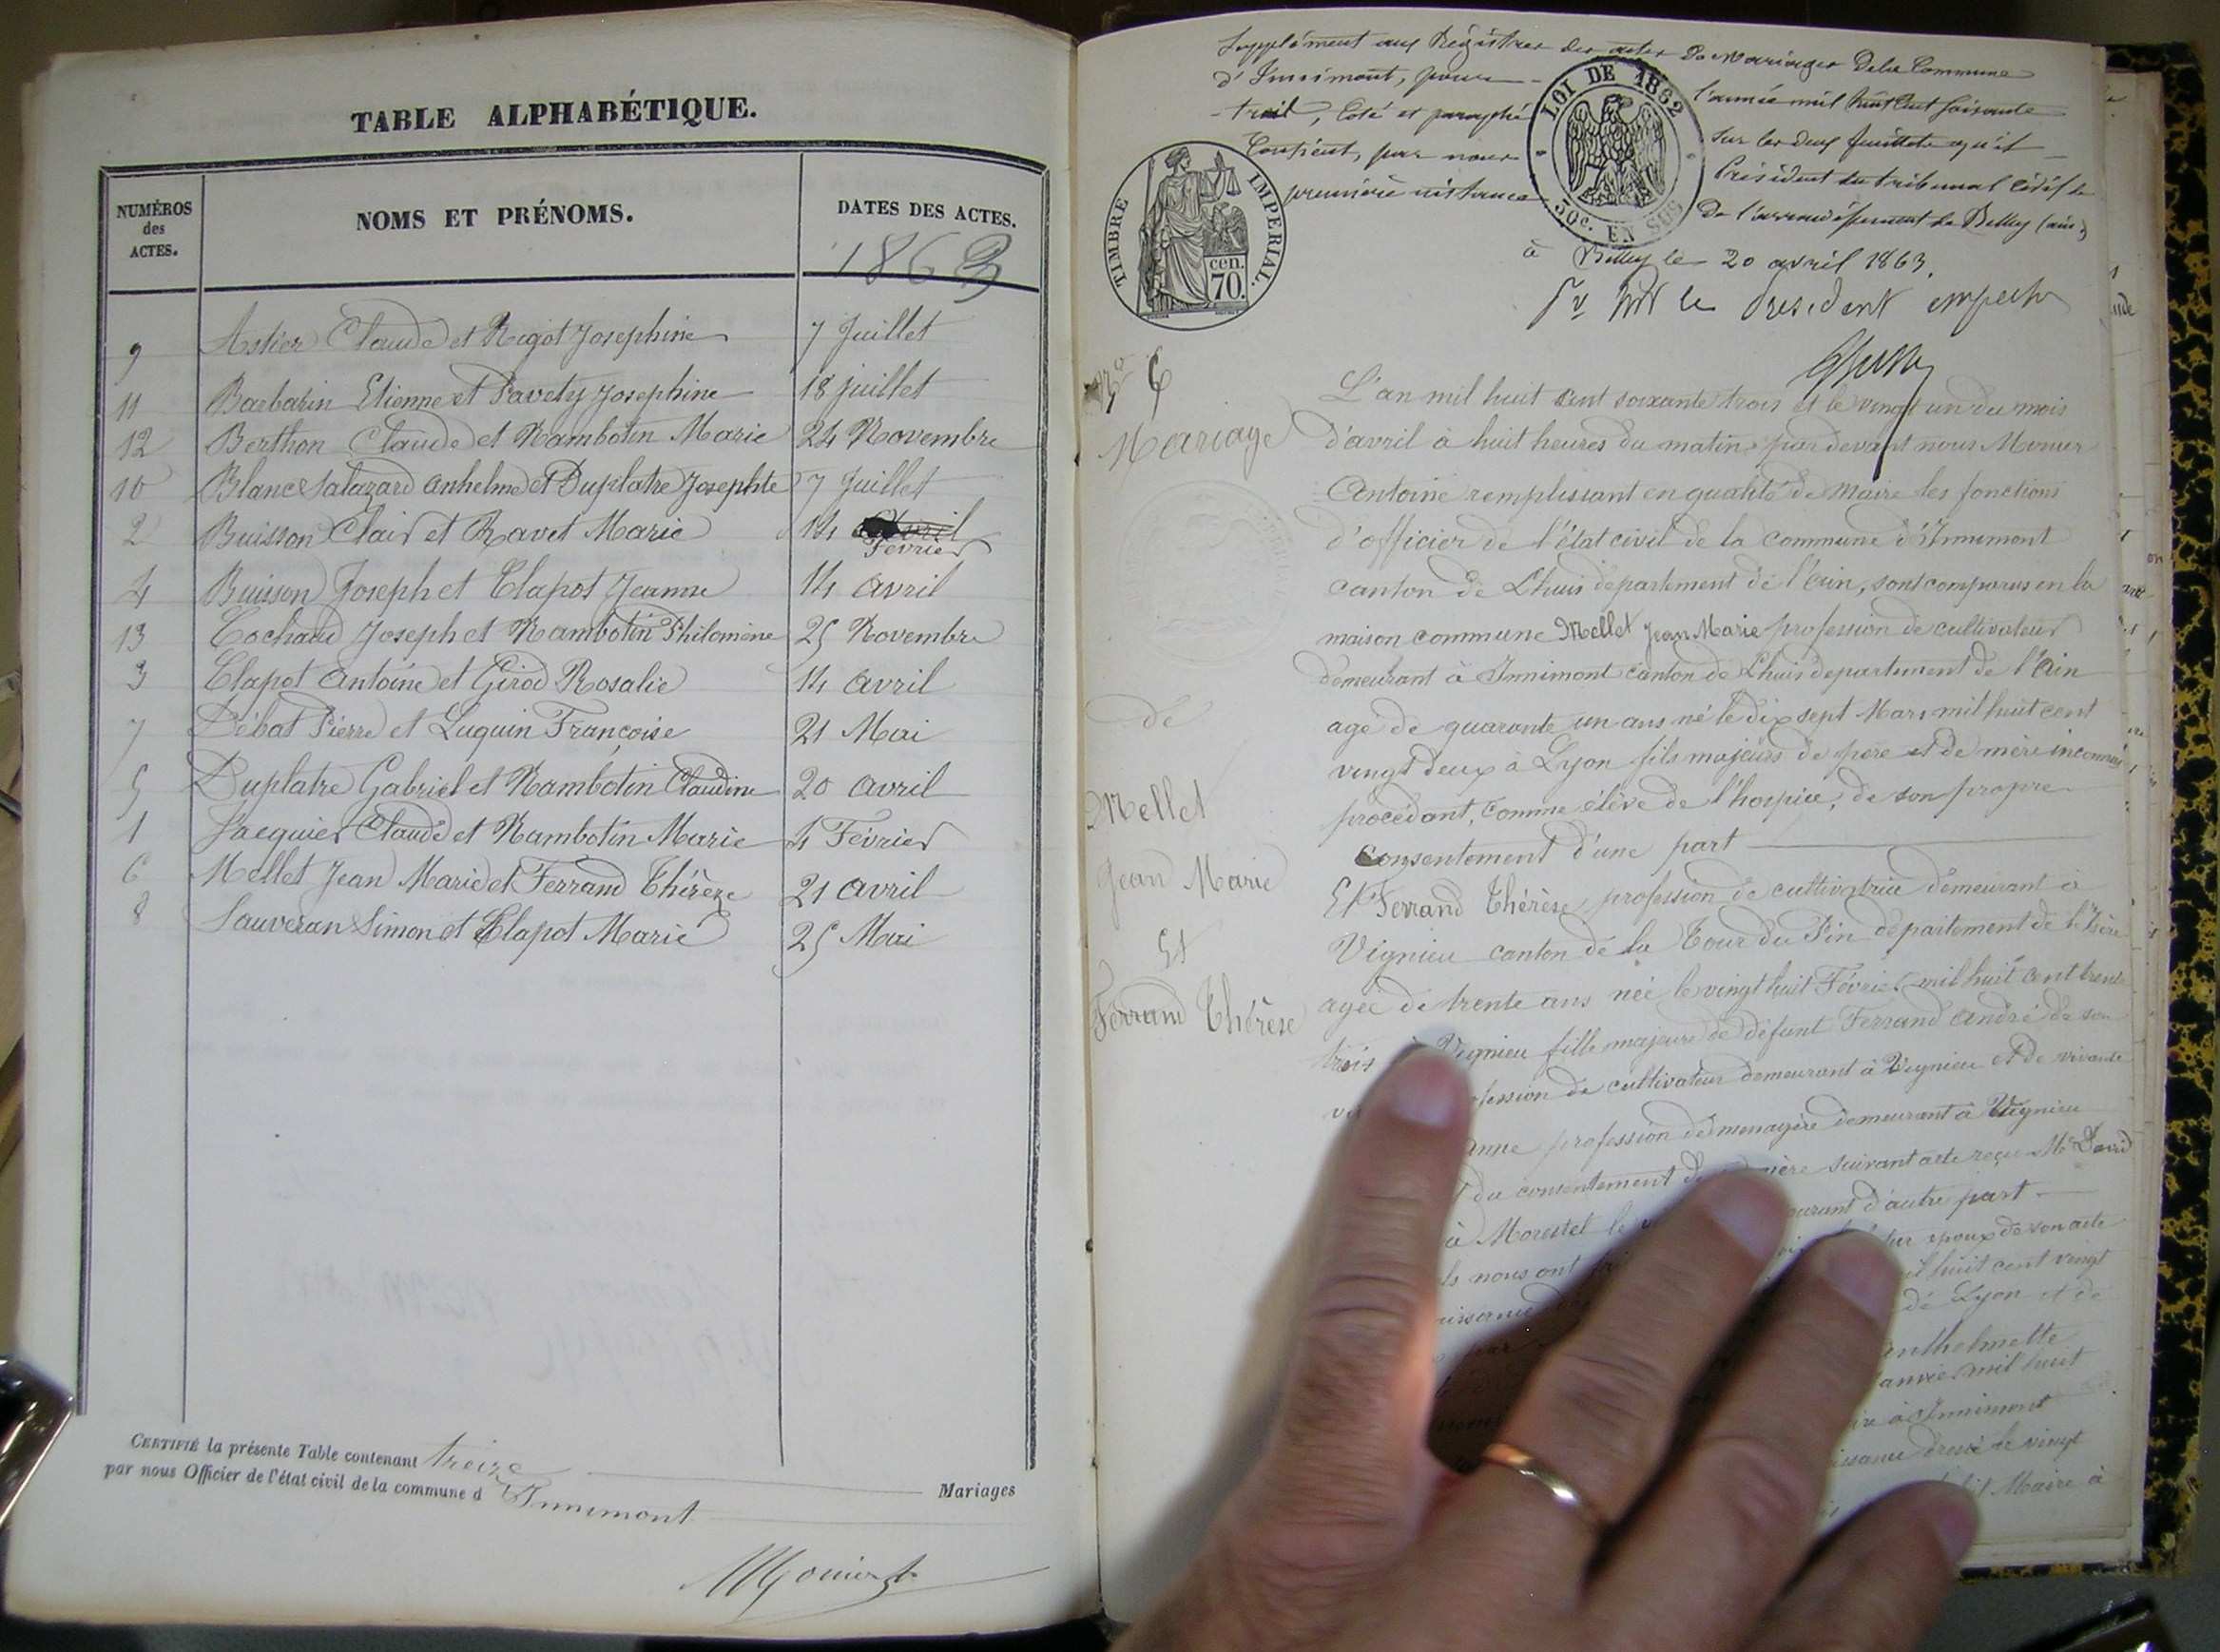 TABLE ALPHABÉTIQUE.
NUMÉROS des ACTES.
NOMS ET PRÉNOMS.
DATES DES ACTES.
1863
9 Astier Claude et Rigot Josephine 7 Juillet
11 Barbarin Etienne et Pavety Josephine 18 juillet
12 Berthon Claude et Rambotin Marie 24 Novembre
10 Blanc Salazard anhelme et Duplatre Josephte 7 Juillet
2 Buisson Clair et Ravet Marie 14 Avril Février
4 Buisson Joseph et Clapot Jeanne 14 avril
13 Cochaud Joseph et Rambotin Philomène 25 Novembre
3 Clapot Antoine et Girod Rosalie 14 avril
7 Débat Pierre et Luquin Françoise 21 Mai
5 Duplatre Gabriel et Rambotin Claudine 20 avril
1 Jacquier Claude et Rambotin Marie 4 Février
6 Mellet Jean Marie et Ferrand Thérèze 21 avril
8 Sauveran Simon et Clapot Marie 25 Mai
CERTIFIÉ la présente Table contenant treize Mariages
par nous Officier de l'état civil de la commune d'Innimont
Supplément aux Régistres des actes de mariages de la Commune
d'Innimont, pour l'année mil huit cent soixante
trois, coté et paraphé sur les deux feuillets qu'il
Contient, par nous Président du tribunal civil de
première instance de l'arrondissement de Belley (ain)
à Belley le 20 avril 1863.
Pr le Président empêché
LOI DE 1862
30c. EN SUS
TIMBRE IMPERIAL.
cen. 70.
No 6
Mariage
de
Mellet
Jean Marie
Et
Ferrand Thérèse
L'an mil huit cent soixante trois et le vingt un du mois
d'avril à huit heures du matin, par devant nous Monier
Antoine remplissant en qualité de maire les fonctions
d'officier de l'état civil de la commune d'Innimont
canton de Lhuis département de l'ain, sont comparus en la
maison commune Mellet Jean Marie profession de cultivateur
demeurant à Innimont canton de Lhuis departement de l'Ain
agé de quarante un ans né le dix sept Mars mil huit cent
vingt deux à Lyon fils majeurs de père et de mère inconnus
procédant, comme élève de l'hospice, de son propre
consentement d'une part
Et Ferrand Thérèse, profession de cultivatrice demeurant à
Vignieu canton de la Tour du Pin département de l'Isère
agée de trente ans née le vingt huit Février mil huit cent trente
trois à Vignieu fille majeure de défunt Ferrand André de son
profession de cultivateur demeurant à Vignieu et de vivante
anne profession de menagère demeurant à Vignieu
du consentement de mère suivant acte reçu Me David
à Morestel le d'autre part
ils nous ont époux de son acte
mil huit cent vingt
de Lyon et de
anthelmette
mil huit
à Innimont
dressé le vingt
dit Maire à